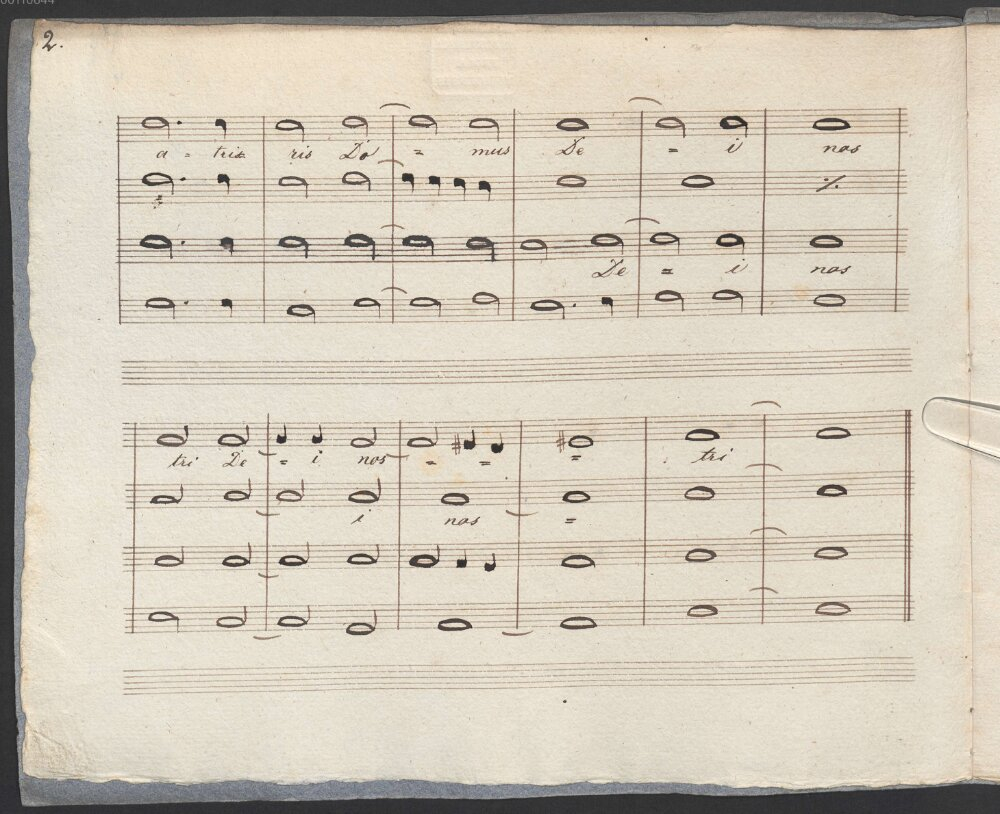 2.
a - tris ris Do = mus De = i nos
De = i nos
tri De = i nos = = = tri
i nos =